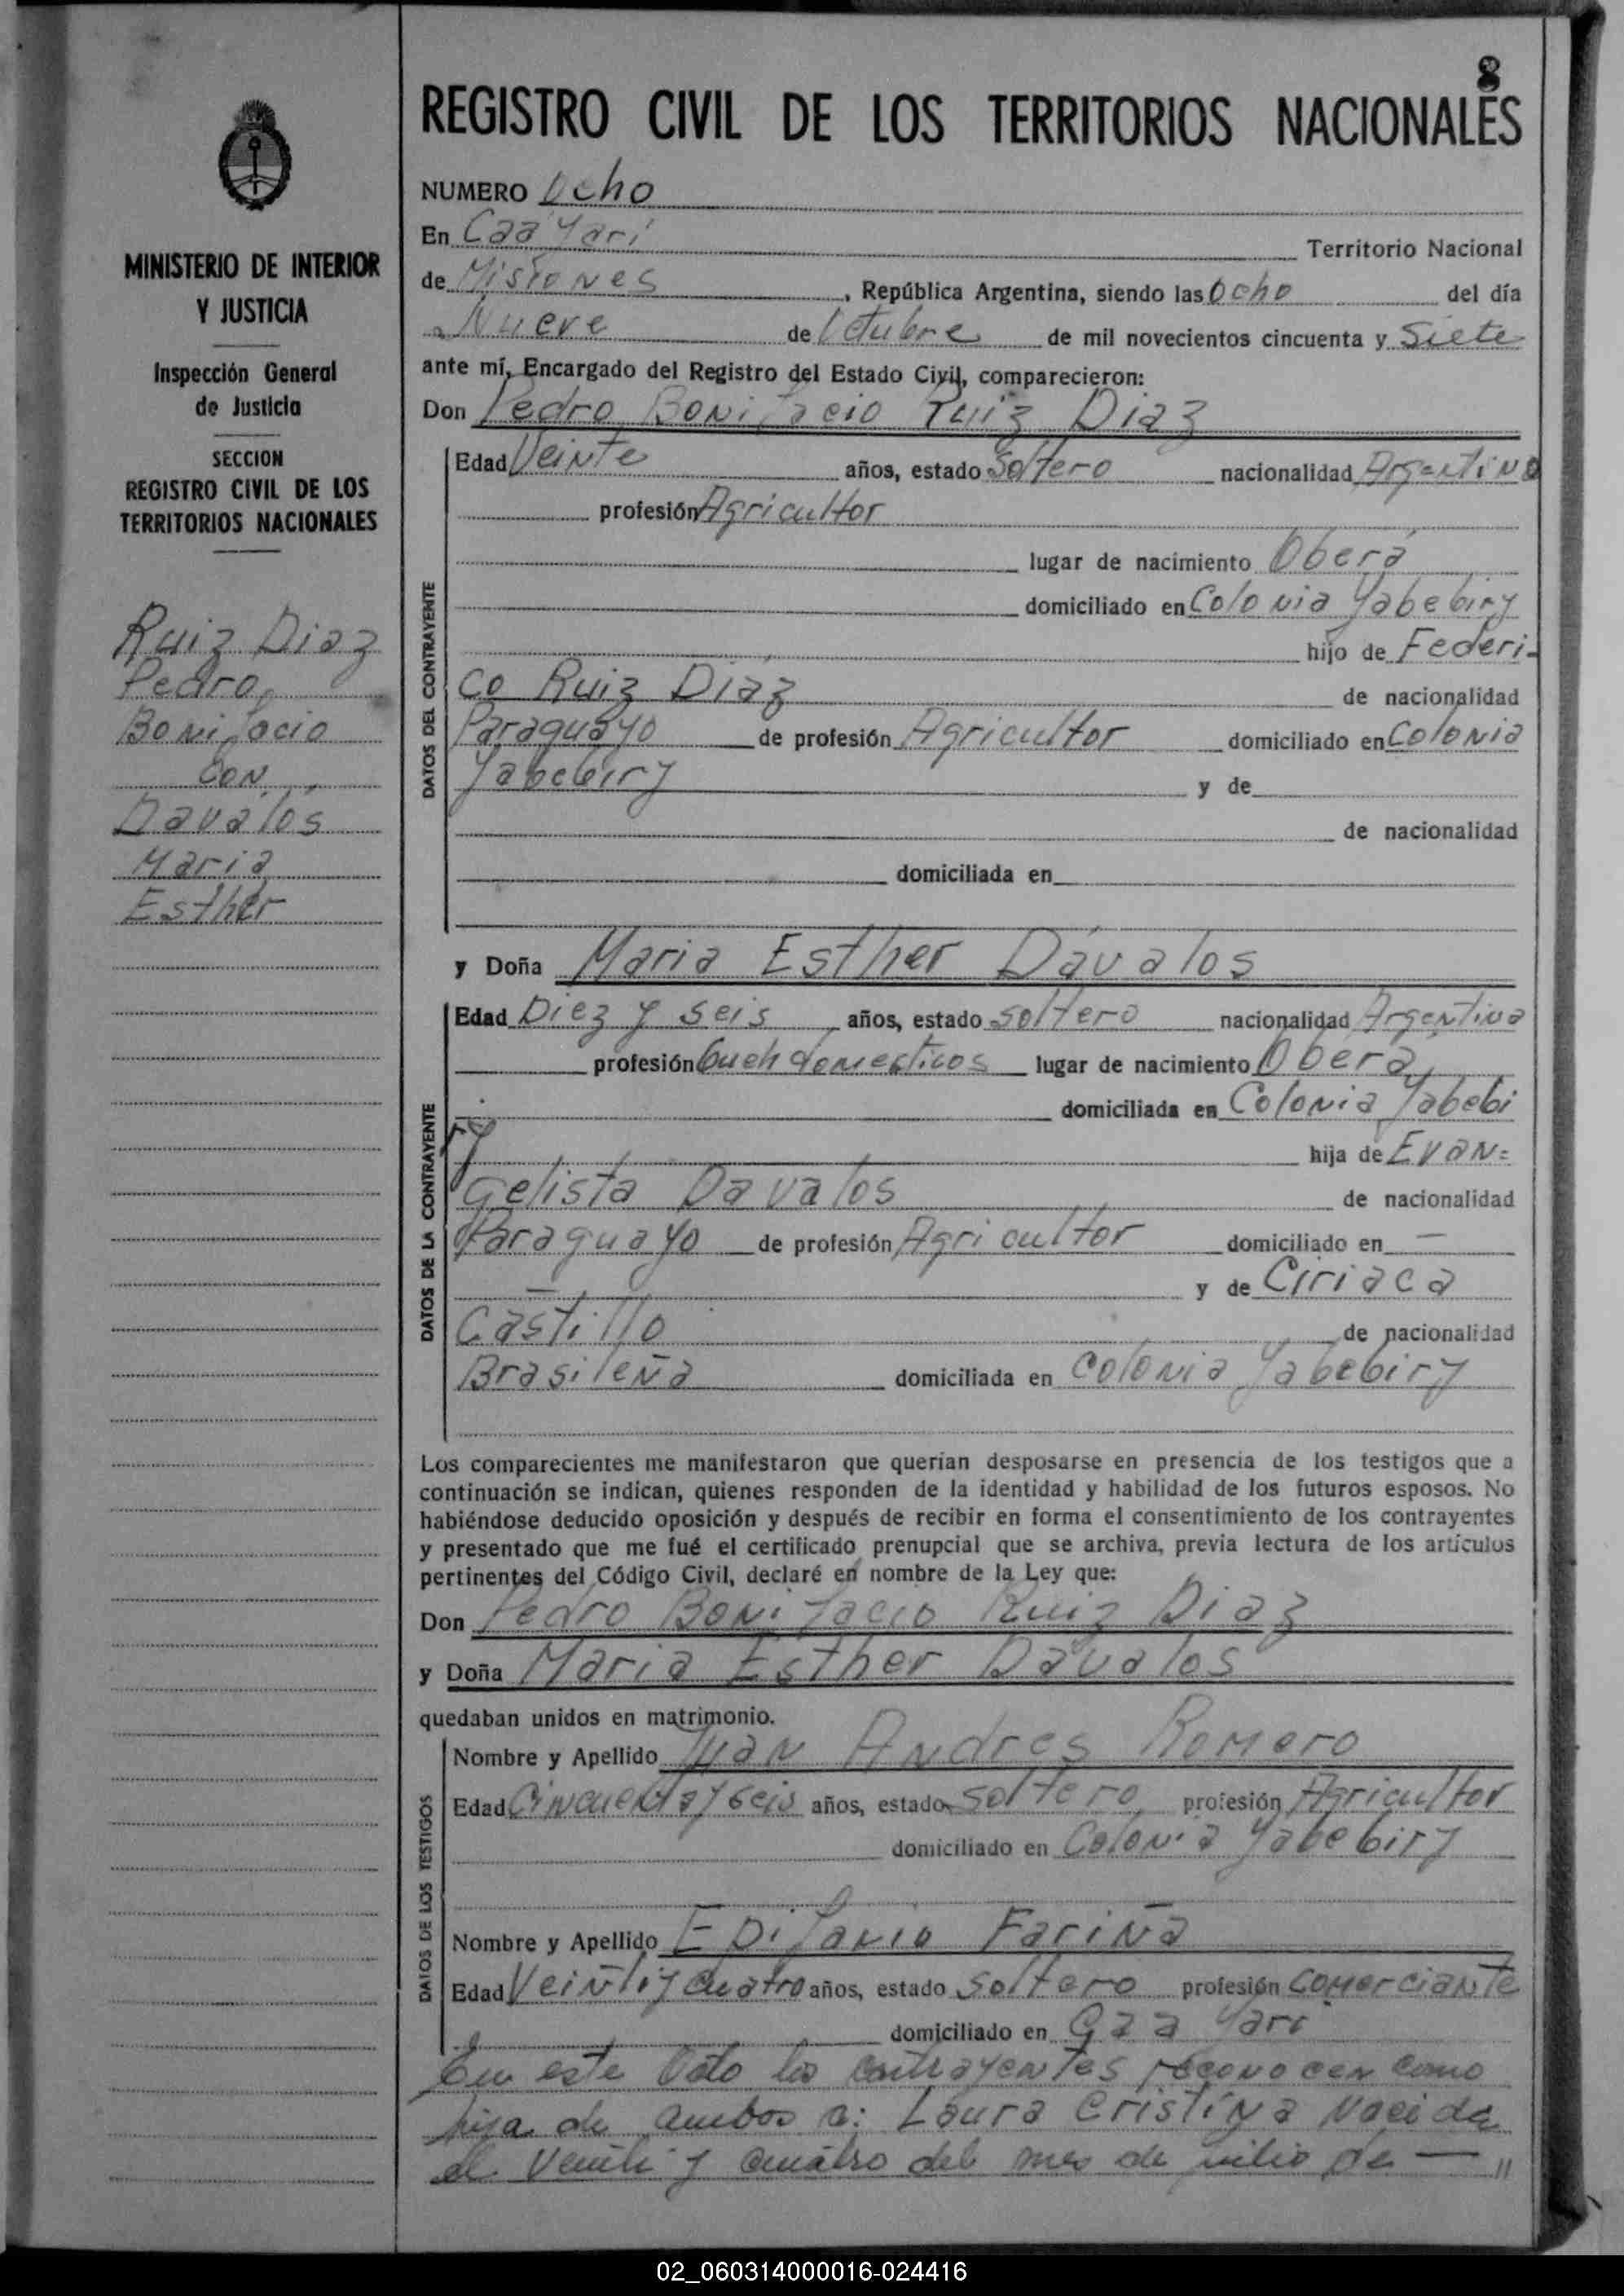 8
REGISTRO CIVIL DE LOS TERRITORIOS NACIONALES
MINISTERIO DE INTERIOR
Y JUSTICIA
Inspección General
de Justicia
SECCION
REGISTRO CIVIL DE LOS
TERRITORIOS NACIONALES
Ruiz Diaz
Pedro
Bonifacio
con
Davalos
Maria
Esther
NUMERO Ocho
En Caá Yarí Territorio Nacional
de Misiones, República Argentina, siendo las Ocho del día
Nueve de Octubre de mil novecientos cincuenta y Siete
ante mí, Encargado del Registro del Estado Civil, comparecieron:
Don Pedro Bonifacio Ruiz Diaz
DATOS DEL CONTRAYENTE
Edad Veinte años, estado Soltero nacionalidad Argentino
profesión Agricultor
lugar de nacimiento Oberá
domiciliado en Colonia Yabebiry
hijo de Federi-
co Ruiz Diaz de nacionalidad
Paraguayo de profesión Agricultor domiciliado en Colonia
Yabebiry y de
de nacionalidad
domiciliada en
y Doña Maria Esther Dávalos
DATOS DE LA CONTRAYENTE
Edad Diez y seis años, estado soltero nacionalidad Argentina
profesión domesticos lugar de nacimiento Oberá
domiciliada en Colonia Yabebi
ry hija de Evan=
gelista Davalos de nacionalidad
Paraguayo de profesión Agricultor domiciliado en —
— y de Ciriaca
Castillo de nacionalidad
Brasileña domiciliada en Colonia Yabebiry
Los comparecientes me manifestaron que querían desposarse en presencia de los testigos que a
continuación se indican, quienes responden de la identidad y habilidad de los futuros esposos. No
habiéndose deducido oposición y después de recibir en forma el consentimiento de los contrayentes
y presentado que me fué el certificado prenupcial que se archiva, previa lectura de los artículos
pertinentes del Código Civil, declaré en nombre de la Ley que:
Don Pedro Bonifacio Ruiz Diaz
y Doña Maria Esther Dávalos
quedaban unidos en matrimonio.
DATOS DE LOS TESTIGOS
Nombre y Apellido Juan Andres Romero
Edad Cincuenta y seis años, estado soltero profesión Agricultor
domiciliado en Colonia Yabebiry
Nombre y Apellido Epifanio Fariña
Edad Veinti y cuatro años, estado soltero profesión comerciante
domiciliado en Caa Yari
En este Acto los contrayentes reconocen como
hija de ambos a: Laura Cristina Nacida
el Veinti y cuatro del mes de julio de — "
02_060314000016-024416